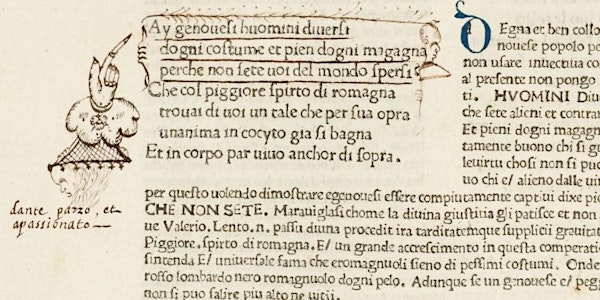 Ay genouesi huomini diuersi
dogni costume et pien dogni magagna
perche non sete uoi del mondo spersi
Che col piggiore spirto di romagna
trouai di uoi un tale che per sua opra
unanima in cocyto gia si bagna
Et in corpo par uiuo anchor di sopra.
dante pazzo, et
apassionato
d Egna et ben collo
nouese popolo pe
non usare inuectiua co
al presente non pongo
ti. HVOMINI Diu
che sete alieni et contrar
Et pieni dogni magagn
tamente buono chi si gu
leuirtu chosi non si puo
uo chi e/ alieno dalle uir
per questo uolendo dimostrare egenouesi essere compiutamente captiui dixe pie
CHE NON SETE. Marauiglasi chome la diuina giustitia gli patisce et non a
ue Valerio. Lento. n. passu diuina procedit ira tarditatemque supplicii grauitat
Piggiore, spirto di romagna. E/ un grande accrescimento in questa comperati
sintenda E/ uniuersale fama che eromagnuoli sieno di pessimi costumi. Onde
rosso lombardo nero romagnuolo dogni pelo. Adunque se un genouese e/ peg
non si puo salire piu alto ne uitii.